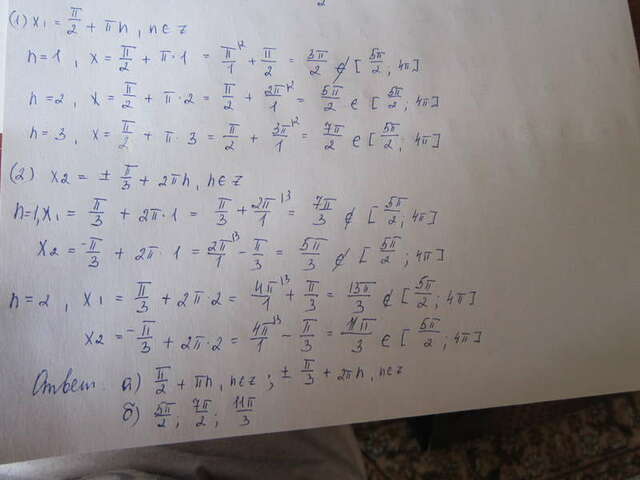 (1) x₁ = π/2 + πn, n∈z
n=1, x = π/2 + π·1 = π/1^12 + π/2 = 3π/2 ∉ [5π/2; 4π]
n=2, x = π/2 + π·2 = π/2 + 2π/1^12 = 5π/2 ∈ [5π/2; 4π]
n=3, x = π/2 + π·3 = π/2 + 3π/1^12 = 7π/2 ∈ [5π/2; 4π]
(2) x₂ = ± π/3 + 2πn, n∈z
n=1, x₁ = π/3 + 2π·1 = π/3 + 2π/1^13 = 7π/3 ∉ [5π/2; 4π]
x₂ = -π/3 + 2π·1 = 2π/1^13 - π/3 = 5π/3 ∉ [5π/2; 4π]
n=2, x₁ = π/3 + 2π·2 = 4π/1^13 + π/3 = 13π/3 ∉ [5π/2; 4π]
x₂ = -π/3 + 2π·2 = 4π/1^13 - π/3 = 11π/3 ∈ [5π/2; 4π]
Ответ: а) π/2 + πn, n∈z; ± π/3 + 2πn, n∈z
б) 5π/2; 7π/2; 11π/3